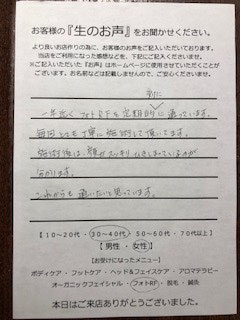 お客様の『生のお声』をお聞かせください。
より良いお店作りの為に、お客様のお声をご記入いただいております。
当店をご利用になった感想などを、下記にご記入くださいませ。
※ご記入いただいた『お声』はホームページに使用させていただくことが
ございます。お名前などは記載しませんので、ご安心くださいませ。
一年近くフォトRFを定期的に通っています。
毎回とても丁寧に施術して頂いてます。
施術後は、顔がスッキリひきしまっているのが
分かります。
これからも通いたいと思っています。
【 10～20代 ・ 30～40代 ・ 50～60代 ・ 70代以上 】
【 男性 ・ 女性 】
【お受けになったメニュー】
ボディケア ・ フットケア ・ ヘッド＆フェイスケア ・ アロマテラピー
オーガニックフェイシャル ・ フォトRF ・ 脱毛 ・ 鍼灸
本日はご来店ありがとうございました。